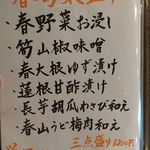 春野菜お浸し
筍山椒味噌
春大根ゆず漬け
蓮根甘酢漬け
長芋胡瓜わさび和え
春山うど梅肉和え
三点盛り1210円